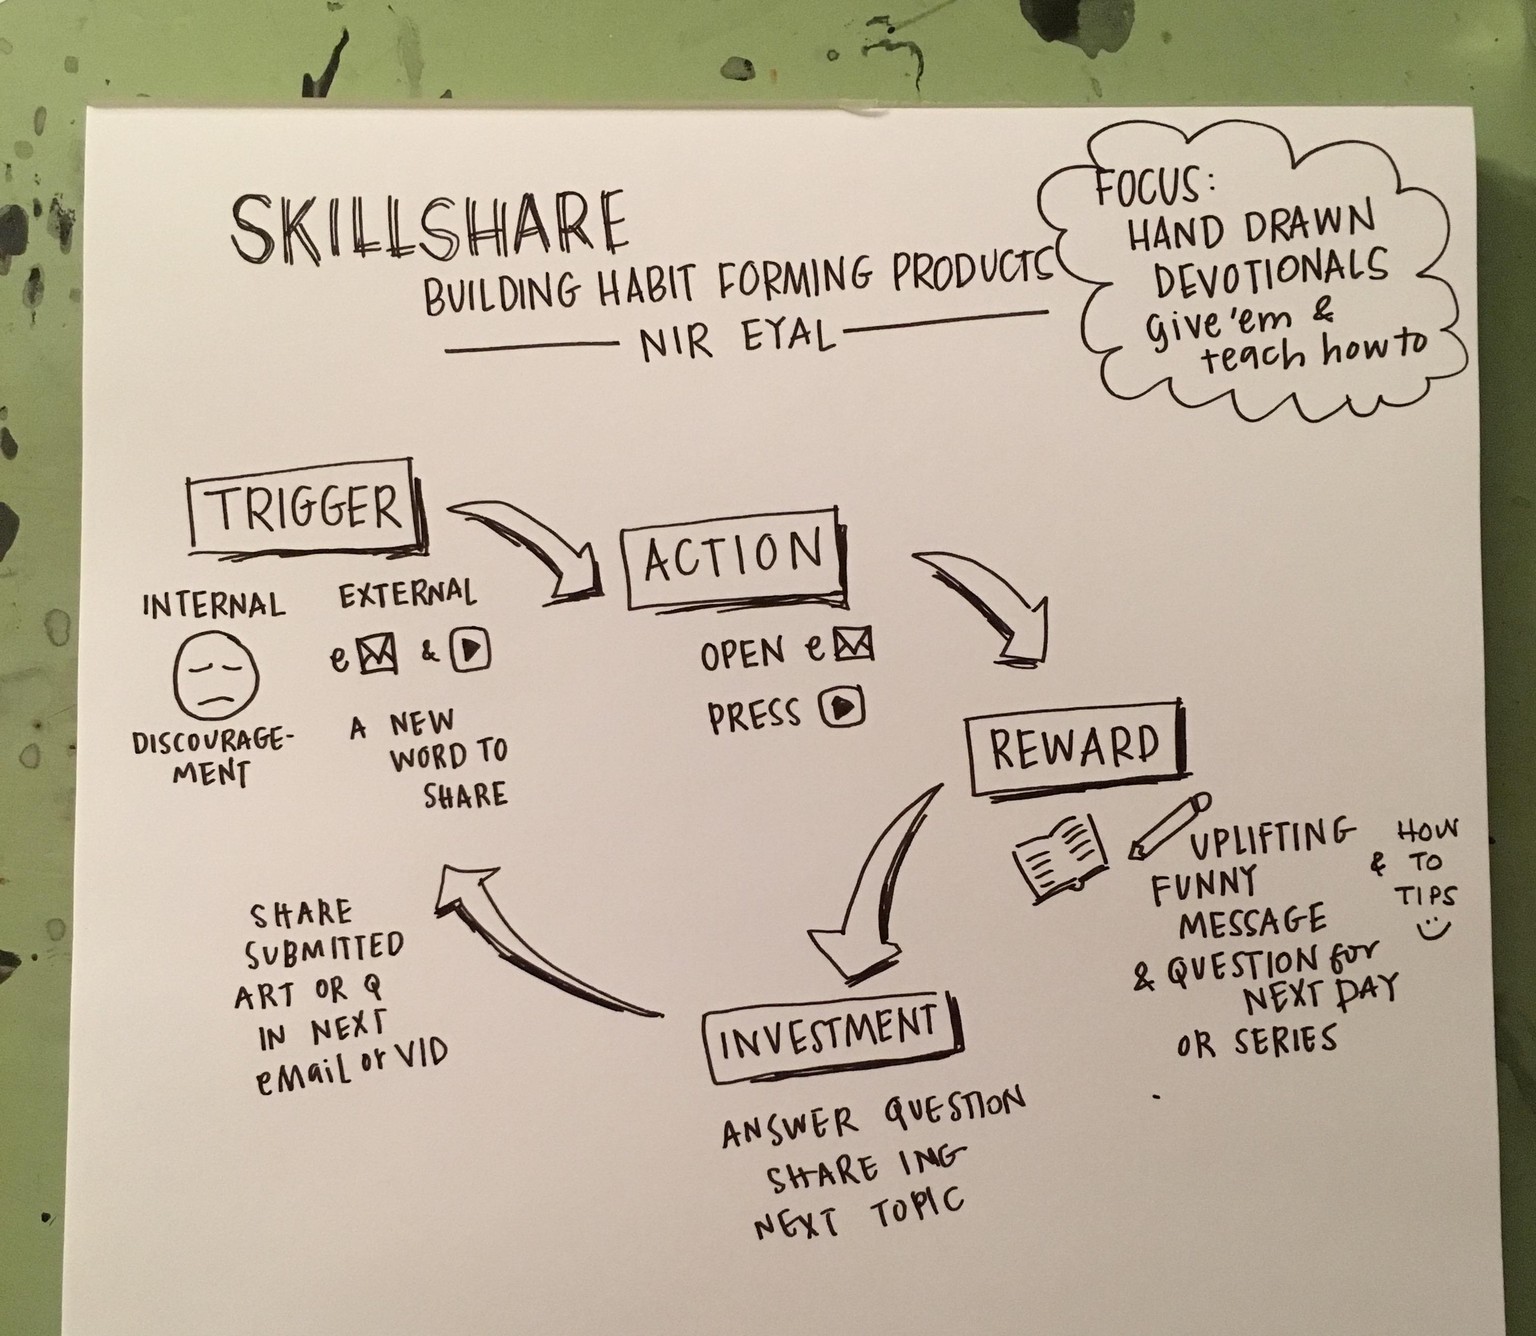 SKILLSHARE
BUILDING HABIT FORMING PRODUCTS
NIR EYAL
FOCUS:
HAND DRAWN
DEVOTIONALS
give 'em &
teach how to
TRIGGER
INTERNAL
DISCOURAGE-
MENT
EXTERNAL
e &
A NEW
WORD TO
SHARE
ACTION
OPEN e
PRESS
REWARD
UPLIFTING
FUNNY
MESSAGE
& QUESTION for
NEXT DAY
OR SERIES
HOW
& TO
TIPS
INVESTMENT
ANSWER QUESTION
SHARE ING
NEXT TOPIC
SHARE
SUBMITTED
ART OR Q
IN NEXT
eMaiL or VID